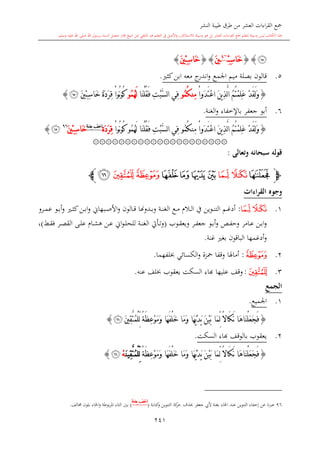 جمع القراءات العشر من طرق طيبة النشر
﴿خَاسِـِٔينَ﴾ ﴿خَاسِيْنَ﴾
٥. قالون بصلة ميم الجمع واندرج معه ابن كثير.
﴿ وَلَقَدْ عَلِمْتُمُ الَّذِينَ اعْتَدَوْا مِنكُمُ فِي السَّبْتِ فَقُلْنَا لَهُمُ كُونُوا قِرَدَةً خَاسِئِينَ ﴾
٦. أبو جعفر بالإخفاء والغنة.
﴿ وَلَقَدْ عَلِمْتُمُ الَّذِينَ اعْتَدَوْا مِنكُمُ فِي السَّبْتِ فَقُلْنَا لَهُمُ كُونُوا قِرَدَةً خَاسِيْنَ ﴾
قوله سبحانه وتعالى :
﴿ فَجَعَلْنَاهَا نَكَالًا لِّمَا بَيْنَ يَدَيْهَا وَمَا خَلْفَهَا وَمَوْعِظَةً لِّلْمُتَّقِينَ ﴾
وجوه القراءات
١. نَكَالًا لِّمَا: أدغم التنوين في اللام مع الغنة وبدونها قالون والأصبهاني وابن كثير وأبو عمرو
وابن عامر وحفص وأبو جعفر ويعقوب (وتأتي الغنة للحلواني عن هشام على القصر فقط)،
وأدغمها الباقون بغير غنة.
٢. وَمَوْعِظَةً : أمالها وقفا حمزة والكسائي بخلفهما.
٣. لِّلْمُتَّقِينَ : وقف عليها بهاء السكت يعقوب بخلف عنه.
الجمع
١. الجميع.
﴿ فَجَعَلْنَاهَا نَكَالًا لِّمَا بَيْنَ يَدَيْهَا وَمَا خَلْفَهَا وَمَوْعِظَةً لِّلْمُتَّقِينَ ﴾
٢. يعقوب بالوقف بهاء السكت.
﴿ فَجَعَلْنَاهَا نَكَالًا لِّمَا بَيْنَ يَدَيْهَا وَمَا خَلْفَهَا وَمَوْعِظَةً لِّلْمُتَّقِينَهْ ﴾
٢٤١